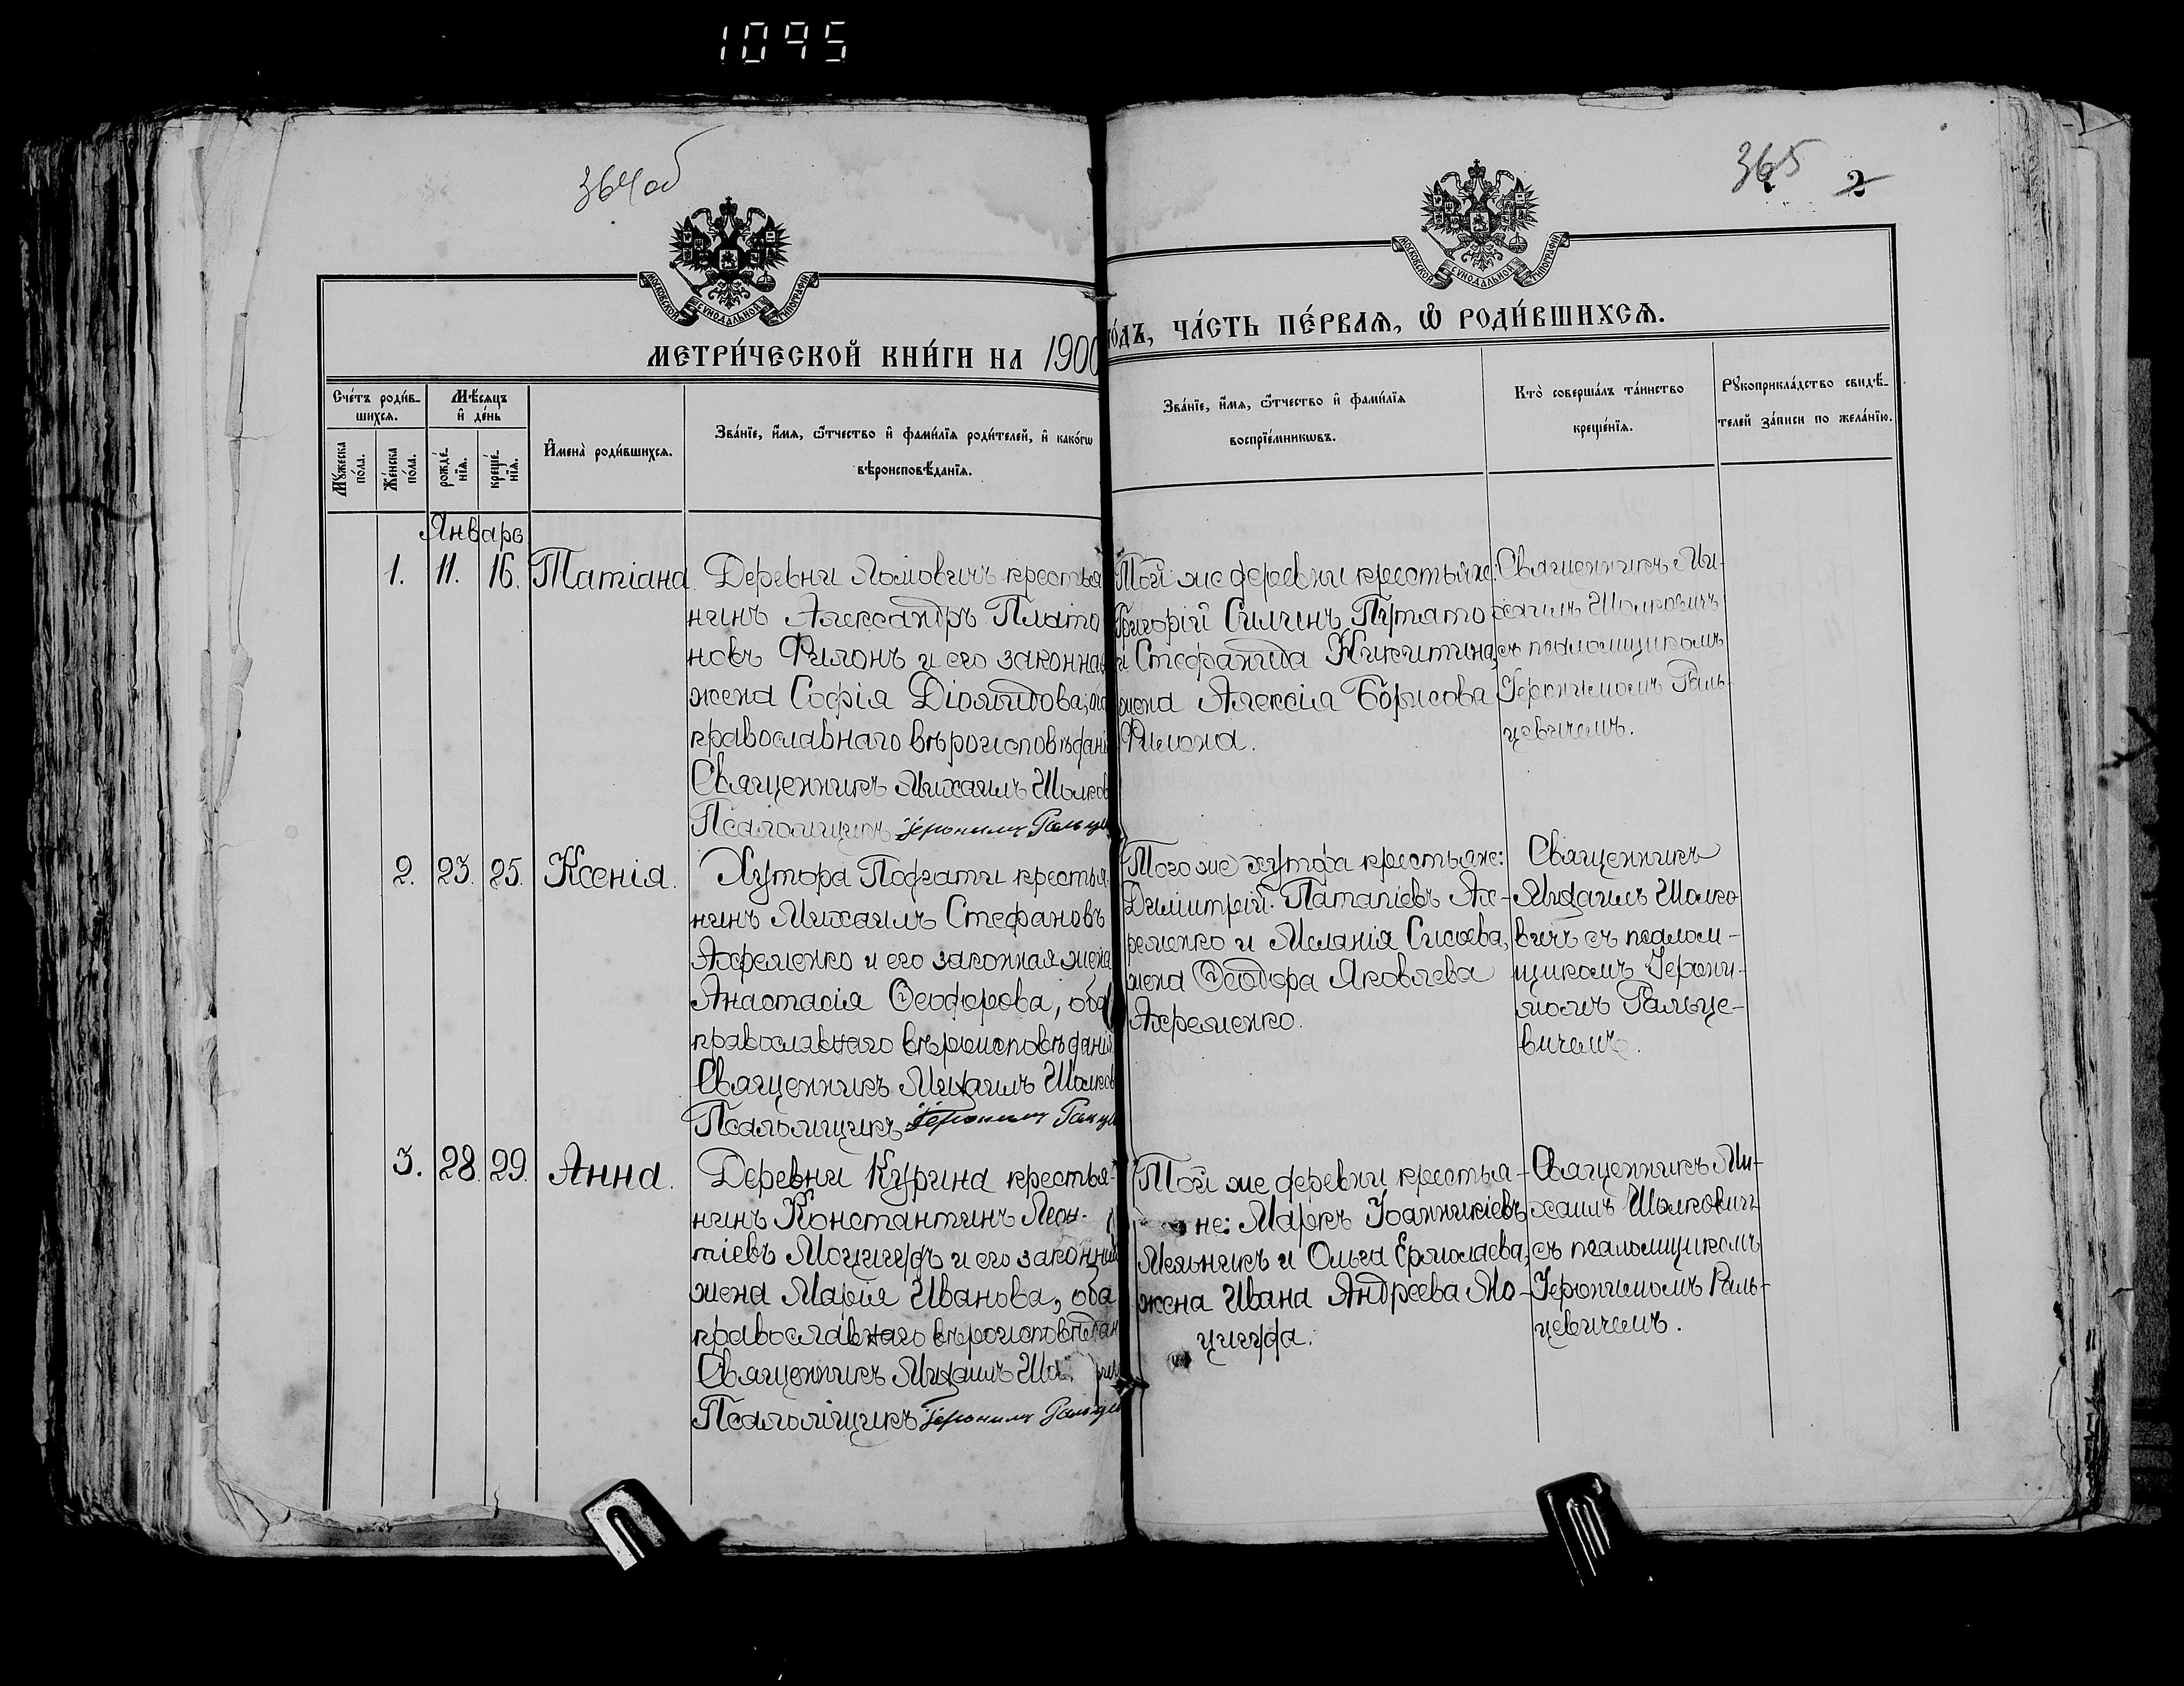 1095
364об
365 2
МОСКОВСКОЙ СѴНОДАЛЬНОЙ ТИПОГРАФІИ
МОСКОВСКОЙ СѴНОДАЛЬНОЙ ТИПОГРАФІИ
МЕТРИ́ЧЕСКОЙ КНИ́ГИ НА 1900
ГО́ДЪ, ЧА́СТЬ ПЕ́РВАѦ, Ѿ РОДИ́ВШИХСѦ.
Сче́тъ роди́в-
шихсѧ.
Мѣ́сяцъ
и҆ де́нь
Мꙋ́жеска
по́ла.
Же́нска
по́ла.
рожде́-
нїѧ.
креще́-
нїѧ.
И҆мена̀ роди́вшихсѧ.
Зва́нїе, и҆́мѧ, ѻ҆́тчество и҆ фами́лїѧ роди́телей, и҆ како́гѡ
вѣроисповѣ́данїѧ.
Зва́нїе, и҆́мѧ, ѻ҆́тчество и҆ фами́лїѧ
воспрїе́мникѡвъ.
Кто̀ соверша́лъ та́инство
креще́нїѧ.
Рꙋкоприкла́дство свидѣ́-
телей за́писи по жела́нїю.
Январь
1. 11. 16. Татіана.
Деревни Ломовичъ крестья
нинъ Александръ Плато
новъ Филонъ и его законная
жена Софія Діомидова; оба
православнаго вѣроисповѣдані
Священникъ Михаилъ Шолков
Псаломщикъ Іеронимъ Гальце
Той же деревни крестьяне:
Григорій Силинъ Путято
и Стефанида Никитина,
жена Алексія Борисова
Филона.
Священникъ Ми-
хаилъ Шолковичъ
съ псаломщикомъ
Іеронимомъ Галь-
цевичемъ.
2. 23. 25. Ксенія.
Хутора Подгати крестья-
нинъ Михаилъ Стефановъ
Ахременко и его законная жена
Анастасія Ѳеодорова, оба
православнаго вѣроисповѣданія
Священникъ Михаилъ Шолков
Псаломщикъ Іеронимъ Гальце
Того же хутора крестьяне:
Димитрій Патапіевъ Ах-
ременко и Меланія Сисоева,
жена Ѳеодора Яковлева
Ахременко.
Священникъ
Михаилъ Шолко
вичъ съ псалом-
щикомъ Іерони-
момъ Гальце-
вичемъ.
3. 28. 29. Анна.
Деревни Курина крестья-
нинъ Константинъ Леон-
тіевъ Моцигудъ и его законная
жена Марія Иванова, оба
православнаго вѣроисповѣдан
Священникъ Михаилъ
Псаломщикъ Іеронимъ Гальце
Той же деревни крестья-
не: Маркъ Іоанникіевъ
Мельникъ и Ольга Ермолаева,
жена Ивана Андреева Мо-
Священникъ Ми-
хаилъ Шолковичъ
съ псаломщикомъ
Іеронимомъ Галь-
цевичемъ.